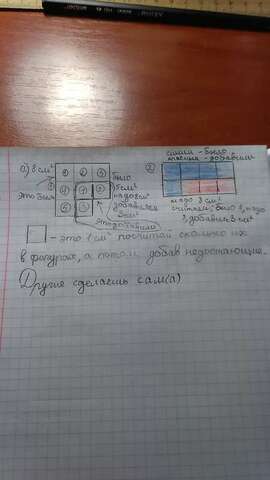 синим - было
красным - добавили
а) 8 см²
было
5 см²
надо 8 см²
добавил
3 см²
это добавили
2)
надо 8 см²
считаем, было 5, надо
8, добавил 3 см²
- это 1 см² посчитай сколько их
в фигурах, а потом добав недостающие.
Другие сделаешь сам(а)